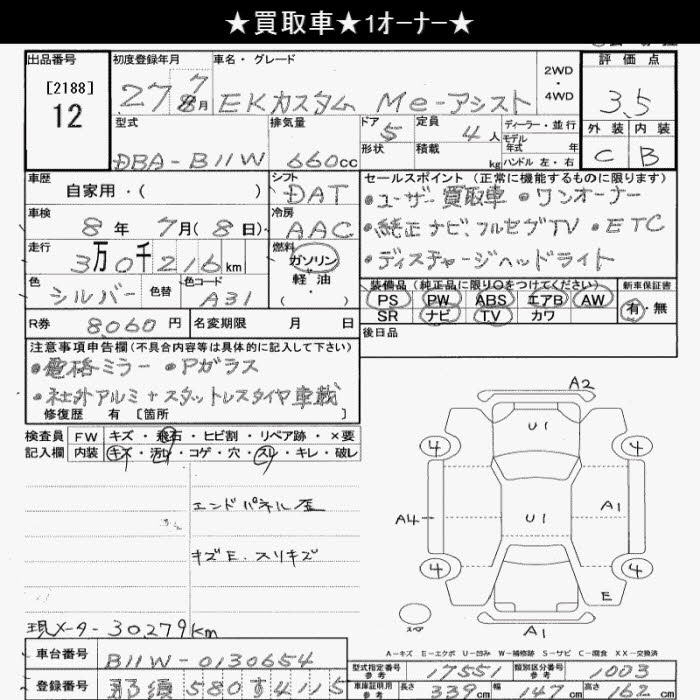 ★買取車★1オーナー★
出品番号 初度登録年月 車名・グレード 2WD 4WD 評価点
[2188] 12
27 7 8月 EKカスタム Me-アシスト 3.5
型式 排気量 ドア 定員 ディーラー・並行 外装 内装
DBA-B11W 660cc 5 4人 モデル年式 年 C B
形状 積載 kg ハンドル 左・右
車歴 自家用・( ) シフト DAT
セールスポイント (正常に機能するものに限ります)
車検 8年 7月(8日) 冷房 AAC
•ユーザー買取車 •ワンオーナー
•純正ナビ、フルセグTV •ETC
•ディスチャージヘッドライト
走行 3万0千216km 燃料 ガソリン 軽油 ( ・ )
色 シルバー 色替 色コード A31
装備品 (純正品に限り○をつけてください) 新車保証書
PS PW ABS エアB AW 有・無
SR ナビ TV カワ
R券 8,060円 名変期限 月 日
後日品
注意事項申告欄(不具合内容等は具体的に記入して下さい)
•電格ミラー •Pガラス
•社外アルミ+スタットレスタイヤ車載
修復歴 有 [箇所 ]
検査員 FW キズ・飛石・ヒビ割・リペア跡・×要
記入欄 内装 キズ・汚レ・コゲ・穴・スレ・キレ・破レ
エンドパネル歪
キズE.スリキズ
現メーター30,279km
車台番号 B11W-0130654
登録番号 那須580す4115
A2
U1
4 4
A4 U1 A1
4 4
E
スペア
A1
A-キズ E-エクボ U-凹み W-補修跡 S-サビ C-腐食 XX-交換済
型式指定番号 参考 17551 類別区分番号 参考 1003
車庫証明用 参考 長さ 339cm 幅 147cm 高さ 162cm